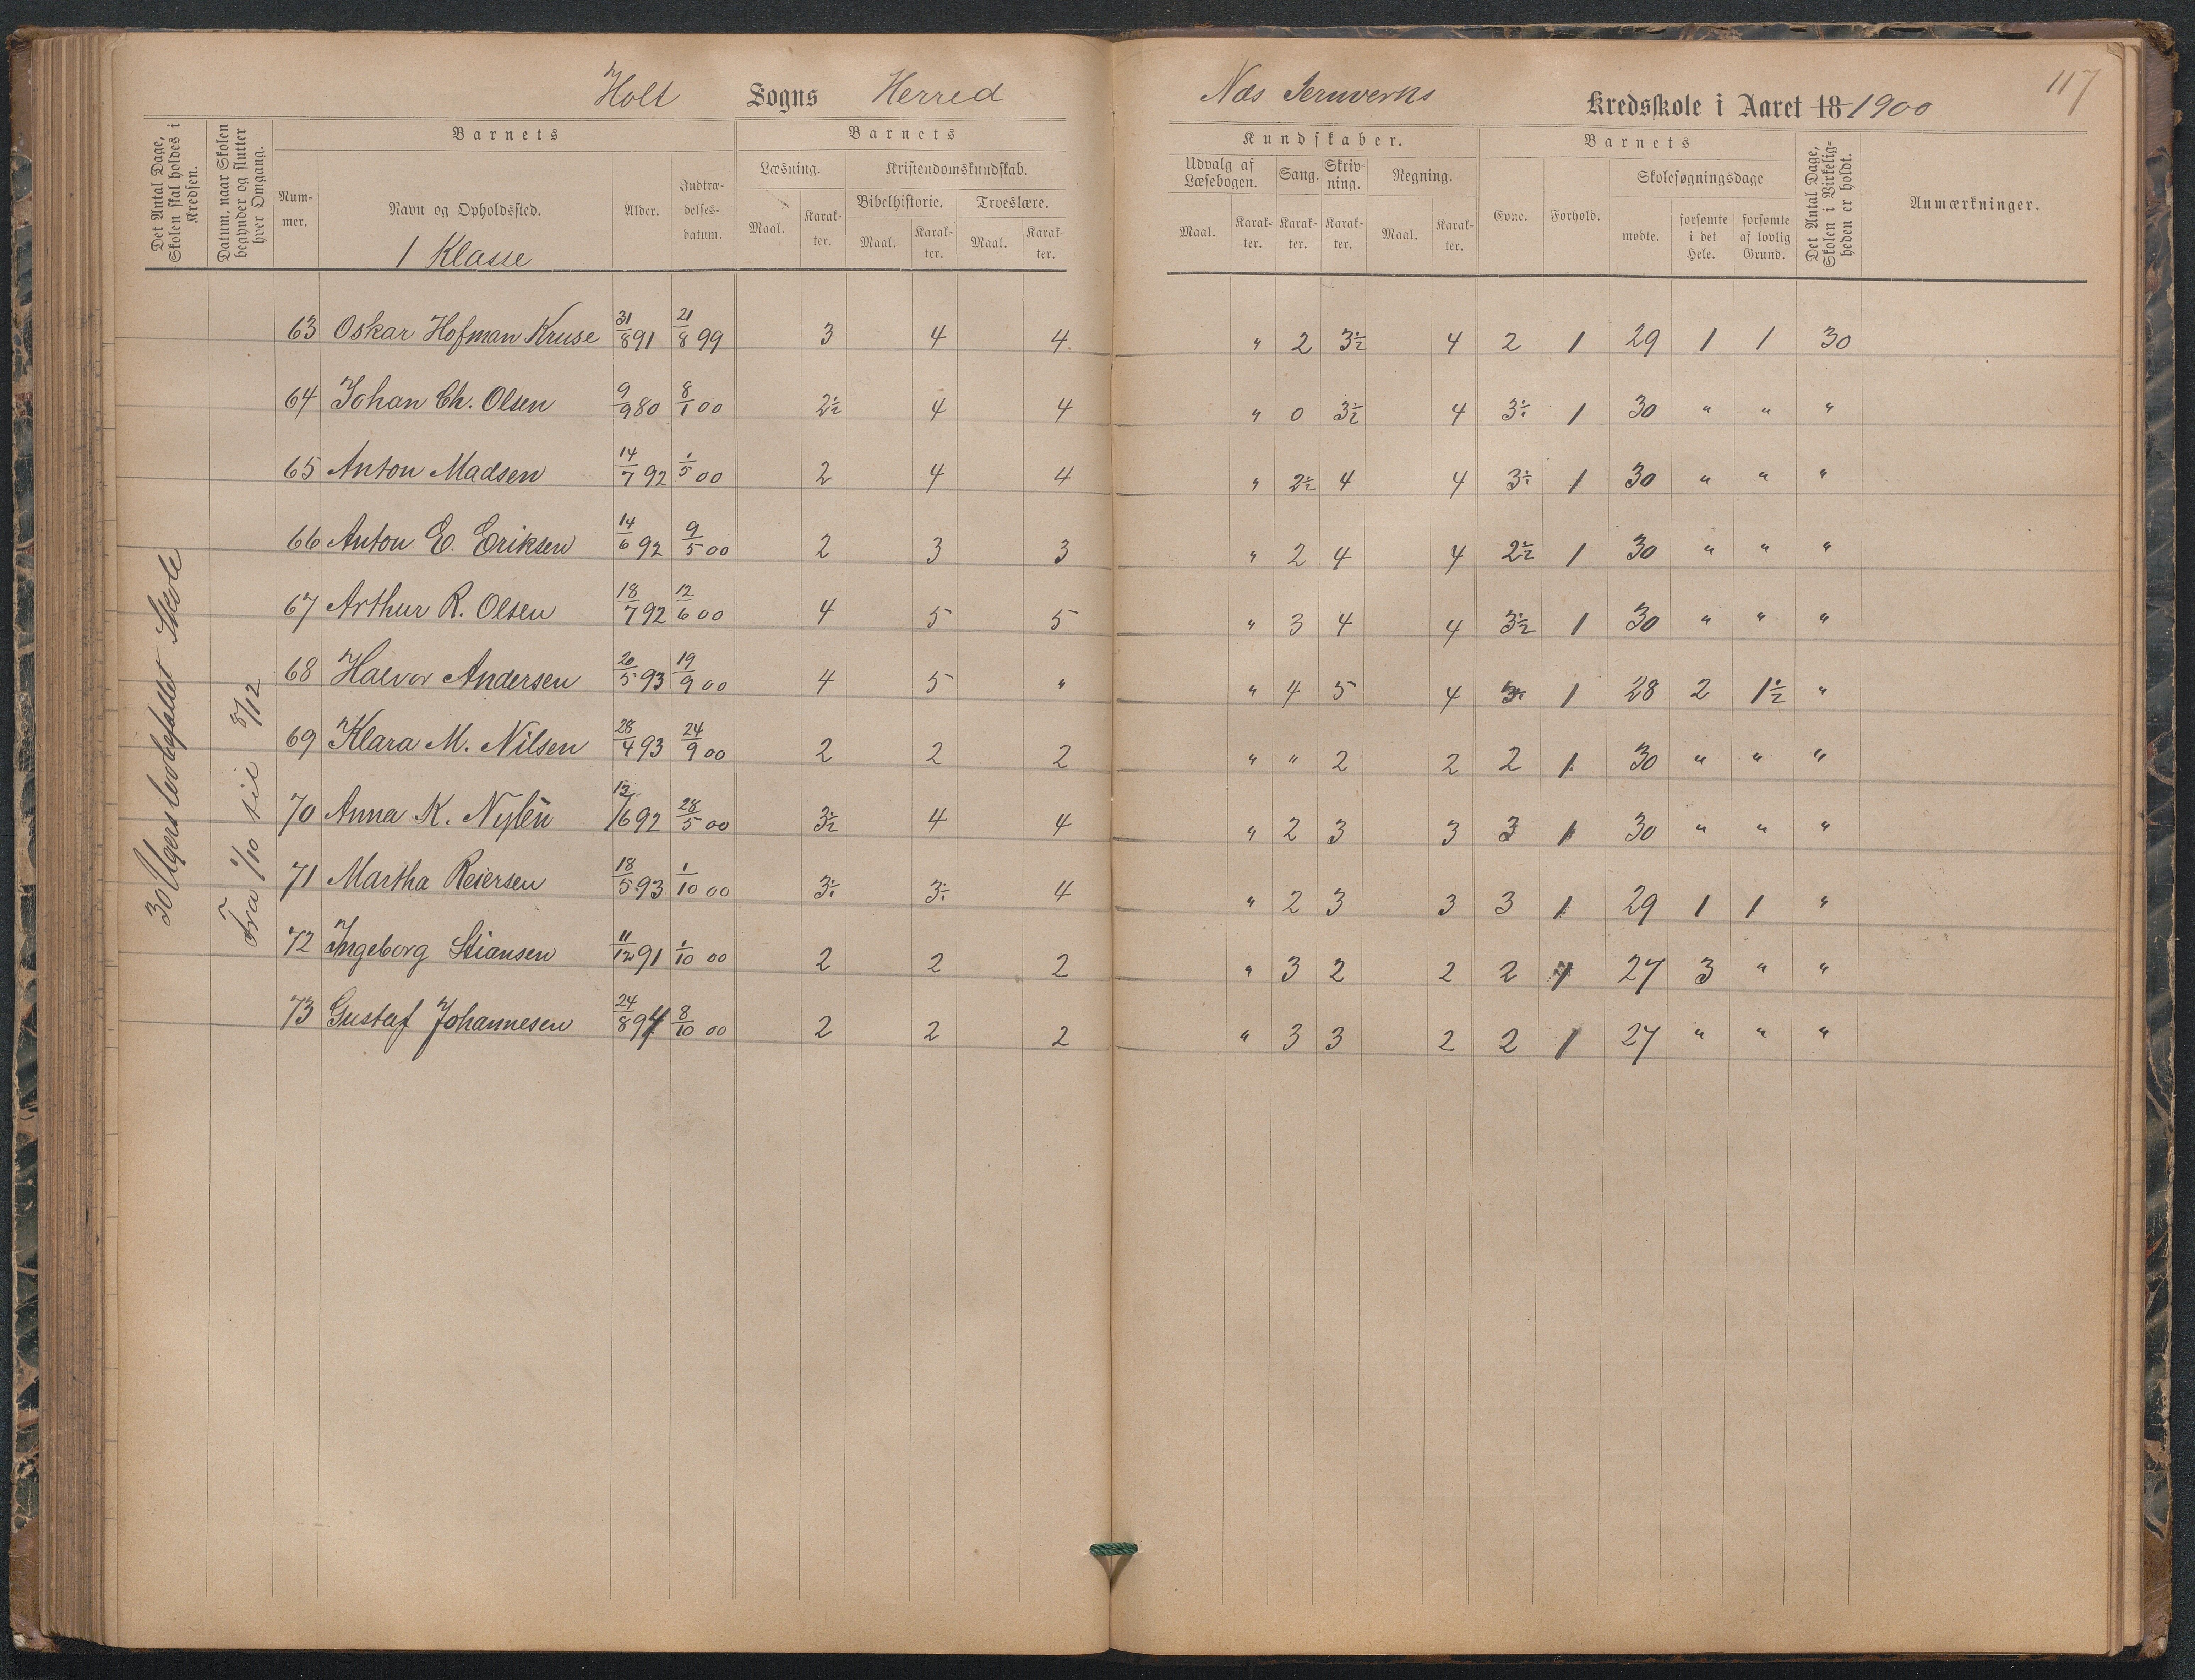 Holt Sogns Herred
Næs Jernverks Kredsskole i Aaret 18 1900
117
Det Antal Dage, Skolen skal holdes i Kredsen.
Datum, naar Skolen begynder og slutter hver Omgang.
Barnets
Nummer.
Navn og Opholdssted.
1 Klasse
Alder.
Indtrædelsesdatum.
Barnets
Læsning.
Kristendomskundskab.
Bibelhistorie.
Troeslære.
Maal.
Karakter.
Maal.
Karakter.
Maal.
Karakter.
Kundskaber.
Udvalg af Læsebogen.
Sang.
Skrivning.
Regning.
Maal.
Karakter.
Karakter.
Karakter.
Maal.
Karakter.
Barnets
Evne.
Forhold.
Skolesøgningsdage
mødte.
forsømte i det Hele.
forsømte af lovlig Grund.
Det Antal Dage, Skolen i Virkeligheden er holdt.
Anmærkninger.
Fra 1/10 til 8/12
63 Oskar Hofman Kruse 31/8 91 21/8 99 3 4 4 " 2 3½ 4 2 1 29 1 1 30
64 Johan Ch. Olsen 9/9 80 8/1 00 2½ 4 4 " 0 3½ 4 3÷ 1 30 " " "
65 Anton Madsen 14/7 92 1/5 00 2 4 4 " 2½ 4 4 3÷ 1 30 " " "
66 Anton E. Eriksen 14/6 92 9/5 00 2 3 3 " 2 4 4 2½ 1 30 " " "
67 Arthur R. Olsen 18/7 92 12/6 00 4 5 5 " 3 4 4 3½ 1 30 " " "
68 Halvor Andersen 20/5 93 19/9 00 4 5 " " 4 5 4 1 28 2 1½ "
69 Klara M. Nilsen 28/4 93 24/9 00 2 2 2 " " 2 2 2 1 30 " " "
70 Anna K. Nylén 12/6 92 28/5 00 3½ 4 4 " 2 3 3 3 1 30 " " "
71 Martha Reiersen 18/5 93 1/10 00 3÷ 3÷ 4 " 2 3 3 3 1 29 1 1 "
72 Ingeborg Stiansen 11/12 91 1/10 00 2 2 2 " 3 2 2 2 1 27 3 " "
73 Gustaf Johannesen 24/8 94 8/10 00 2 2 2 " 3 3 2 2 1 27 " " "